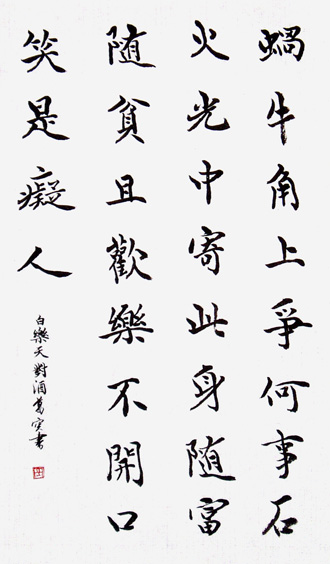 蝸牛角上爭何事石
火光中寄此身随富
随貧且歡樂不開口
笑是癡人
白樂天對酒